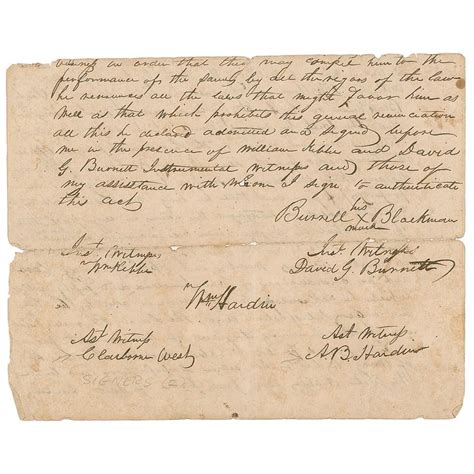 in order that this may compel him to the
performance of the same, by all the rigors of the law
he renounces all the laws that might favor him as
well as that which prohibits this general renunciation
all this he declared admitted and signed before
me in the presence of William Kibbe and David
G. Burnett Instrumental Witness and those of
my assistance with whom I sign to authenticate
this act
Burrell his X mark Blackman
Inst. Witness
Wm Kibbe
Inst. Witness
David G. Burnett
Wm Hardin
Ast Witness
Claiborne West
Ast Witness
A.B. Hardin
SIGNERS